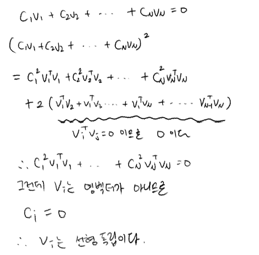 C₁V₁ + C₂V₂ + ··· + CₙVₙ = 0
(C₁V₁ + C₂V₂ + ··· + CₙVₙ)²
= C₁²V₁ᵀV₁ + C₂²V₂ᵀV₂ + ··· + Cₙ²VₙᵀVₙ
+ 2 (V₁ᵀV₂ + V₁ᵀV₃ ···· + V₁ᵀVₙ + ···· Vₙ₋₁ᵀVₙ)
VᵢᵀVⱼ = 0 이므로 0 이다
∴ C₁²V₁ᵀV₁ + ··· + Cₙ²VₙᵀVₙ = 0
그런데 Vᵢ는 영벡터가 아니므로
Cᵢ = 0
∴ Vᵢ는 선형독립이다.